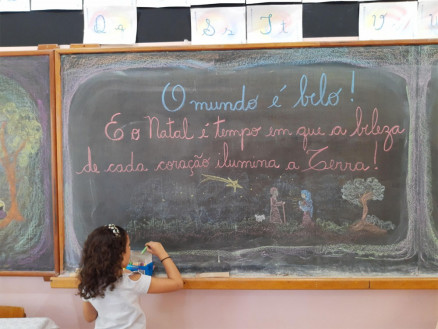 Q q S s T t
O mundo é belo!
E o Natal é tempo em que a beleza
de cada coração ilumina a Terra!